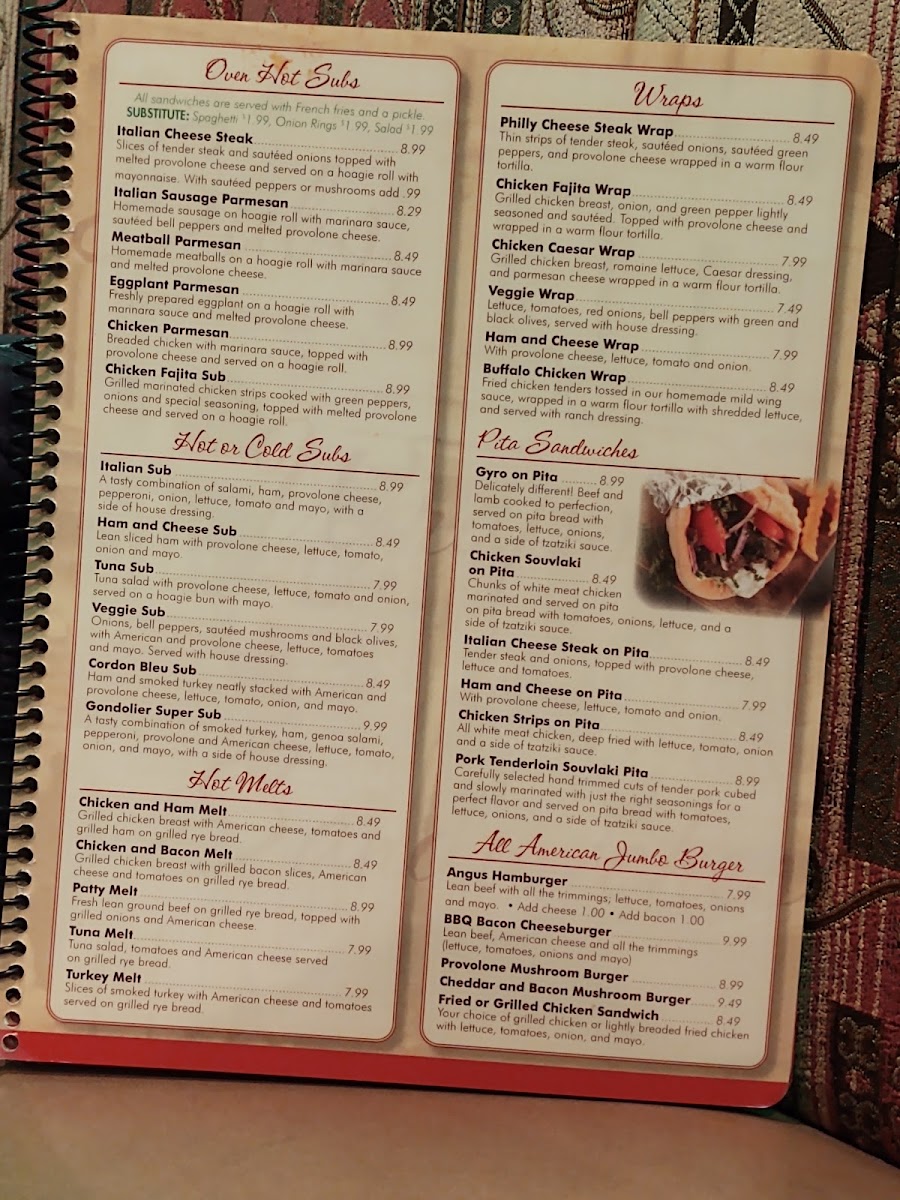 Oven Hot Subs
All sandwiches are served with French fries and a pickle.
SUBSTITUTE: Spaghetti $1.99, Onion Rings $1.99, Salad $1.99
Italian Cheese Steak 8.99
Slices of tender steak and sautéed onions topped with
melted provolone cheese and served on a hoagie roll with
mayonnaise. With sautéed peppers or mushrooms add .99
Italian Sausage Parmesan 8.29
Homemade sausage on hoagie roll with marinara sauce,
sautéed bell peppers and melted provolone cheese.
Meatball Parmesan 8.49
Homemade meatballs on a hoagie roll with marinara sauce
and melted provolone cheese.
Eggplant Parmesan 8.49
Freshly prepared eggplant on a hoagie roll with
marinara sauce and melted provolone cheese.
Chicken Parmesan 8.99
Breaded chicken with marinara sauce, topped with
provolone cheese and served on a hoagie roll.
Chicken Fajita Sub 8.99
Grilled marinated chicken strips cooked with green peppers,
onions and special seasoning, topped with melted provolone
cheese and served on a hoagie roll.
Hot or Cold Subs
Italian Sub 8.99
A tasty combination of salami, ham, provolone cheese,
pepperoni, onion, lettuce, tomato and mayo, with a
side of house dressing.
Ham and Cheese Sub 8.49
Lean sliced ham with provolone cheese, lettuce, tomato,
onion and mayo.
Tuna Sub 7.99
Tuna salad with provolone cheese, lettuce, tomato and onion,
served on a hoagie bun with mayo.
Veggie Sub 7.99
Onions, bell peppers, sautéed mushrooms and black olives,
with American and provolone cheese, lettuce, tomatoes
and mayo. Served with house dressing.
Cordon Bleu Sub 8.49
Ham and smoked turkey neatly stacked with American and
provolone cheese, lettuce, tomato, onion, and mayo.
Gondolier Super Sub 9.99
A tasty combination of smoked turkey, ham, genoa salami,
pepperoni, provolone and American cheese, lettuce, tomato,
onion, and mayo, with a side of house dressing.
Hot Melts
Chicken and Ham Melt 8.49
Grilled chicken breast with American cheese, tomatoes and
grilled ham on grilled rye bread.
Chicken and Bacon Melt 8.49
Grilled chicken breast with grilled bacon slices, American
cheese and tomatoes on grilled rye bread.
Patty Melt 8.99
Fresh lean ground beef on grilled rye bread, topped with
grilled onions and American cheese.
Tuna Melt 7.99
Tuna salad, tomatoes and American cheese served
on grilled rye bread.
Turkey Melt 7.99
Slices of smoked turkey with American cheese and tomatoes
served on grilled rye bread.
Wraps
Philly Cheese Steak Wrap 8.49
Thin strips of tender steak, sautéed onions, sautéed green
peppers, and provolone cheese wrapped in a warm flour
tortilla.
Chicken Fajita Wrap 8.49
Grilled chicken breast, onion, and green pepper lightly
seasoned and sautéed. Topped with provolone cheese and
wrapped in a warm flour tortilla.
Chicken Caesar Wrap 7.99
Grilled chicken breast, romaine lettuce, Caesar dressing,
and parmesan cheese wrapped in a warm flour tortilla.
Veggie Wrap 7.49
Lettuce, tomatoes, red onions, bell peppers with green and
black olives, served with house dressing.
Ham and Cheese Wrap 7.99
With provolone cheese, lettuce, tomato and onion.
Buffalo Chicken Wrap 8.49
Fried chicken tenders tossed in our homemade mild wing
sauce, wrapped in a warm flour tortilla with shredded lettuce,
and served with ranch dressing.
Pita Sandwiches
Gyro on Pita 8.99
Delicately different! Beef and
lamb cooked to perfection,
served on pita bread with
tomatoes, lettuce, onions,
and a side of tzatziki sauce.
Chicken Souvlaki
on Pita 8.49
Chunks of white meat chicken
marinated and served on pita
on pita bread with tomatoes, onions, lettuce, and a
side of tzatziki sauce.
Italian Cheese Steak on Pita 8.49
Tender steak and onions, topped with provolone cheese,
lettuce and tomatoes.
Ham and Cheese on Pita 7.99
With provolone cheese, lettuce, tomato and onion.
Chicken Strips on Pita 8.49
All white meat chicken, deep fried with lettuce, tomato, onion
and a side of tzatziki sauce.
Pork Tenderloin Souvlaki Pita 8.99
Carefully selected hand trimmed cuts of tender pork cubed
and slowly marinated with just the right seasonings for a
perfect flavor and served on pita bread with tomatoes,
lettuce, onions, and a side of tzatziki sauce.
All American Jumbo Burger
Angus Hamburger 7.99
Lean beef with all the trimmings; lettuce, tomatoes, onions
and mayo. • Add cheese 1.00 • Add bacon 1.00
BBQ Bacon Cheeseburger 9.99
Lean beef, American cheese and all the trimmings
(lettuce, tomatoes, onions and mayo)
Provolone Mushroom Burger 8.99
Cheddar and Bacon Mushroom Burger 9.49
Fried or Grilled Chicken Sandwich 8.49
Your choice of grilled chicken or lightly breaded fried chicken
with lettuce, tomatoes, onion, and mayo.